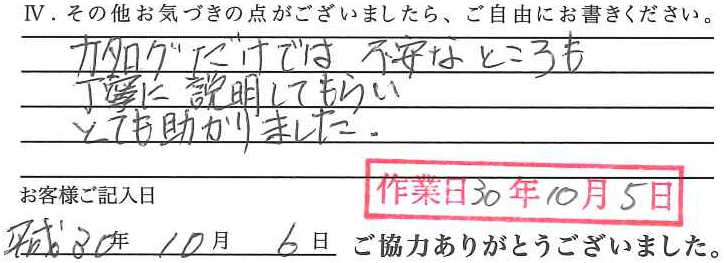 Ⅳ．その他お気づきの点がございましたら、ご自由にお書きください。
カタログだけでは 不安なところも
丁寧に 説明してもらい
とても助かりました.
お客様ご記入日
作業日30年10月5日
平成30年 10月 6日 ご協力ありがとうございました。